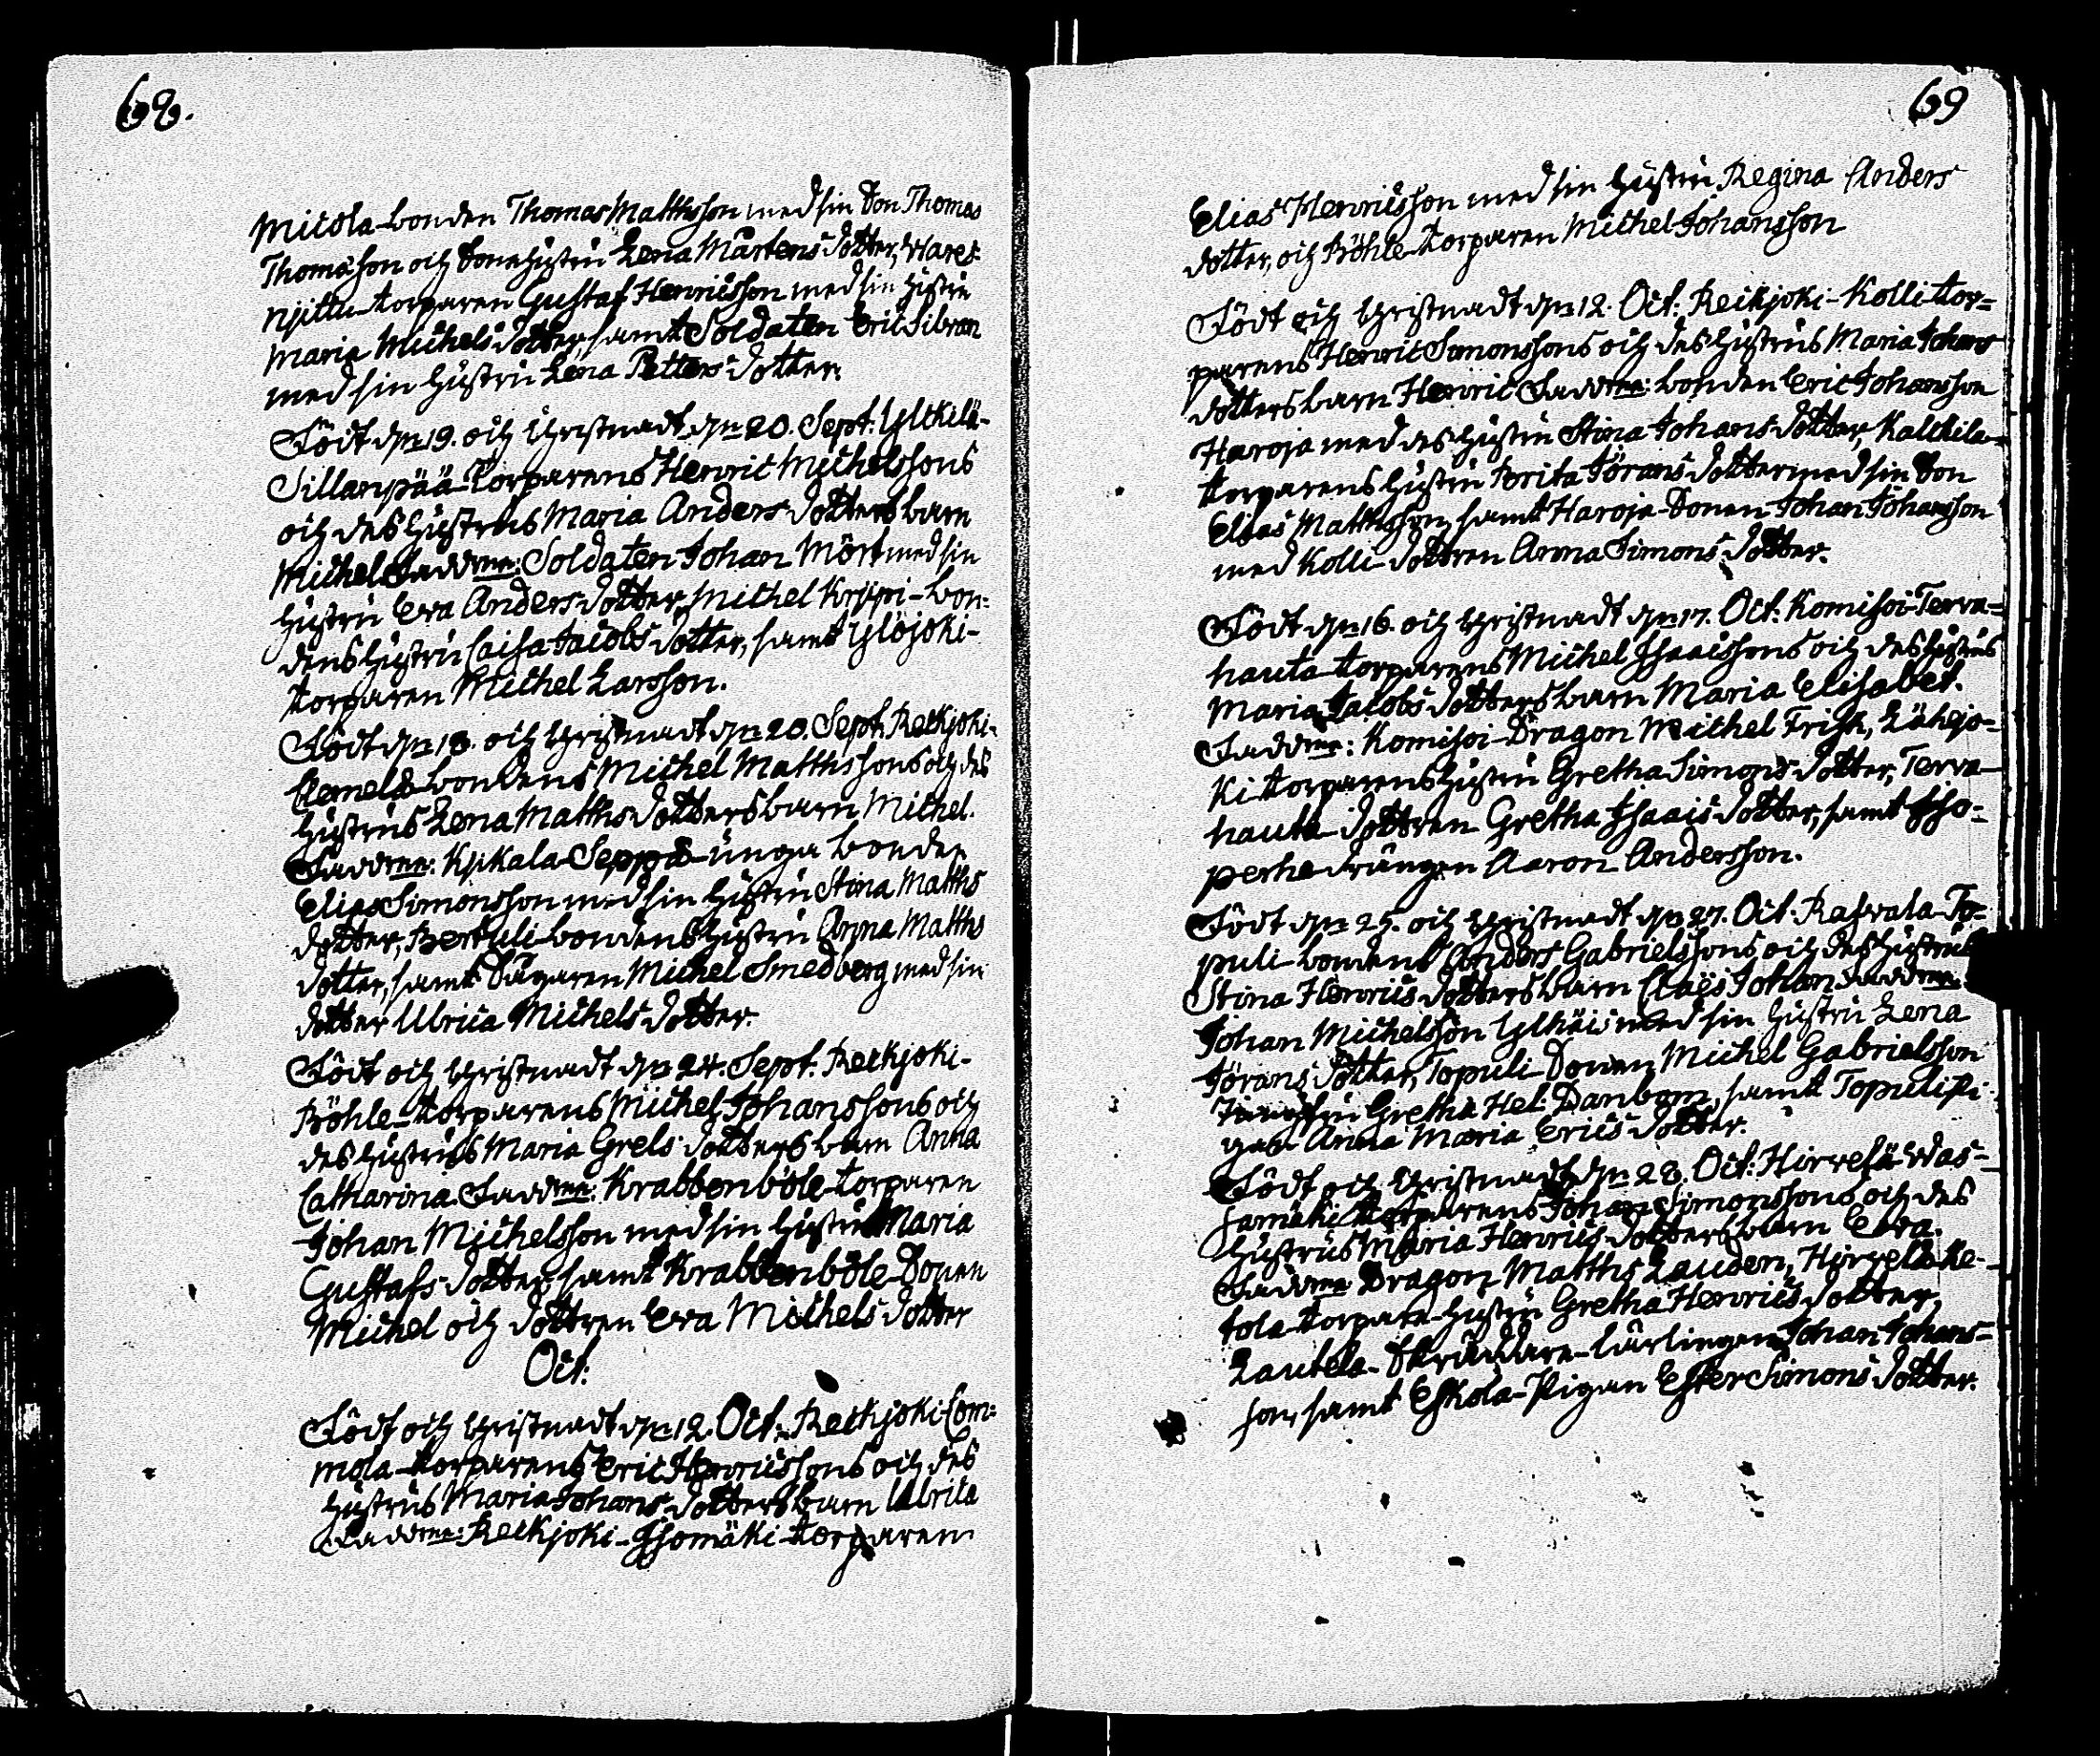 68.
Micola-bonden Thomas Matthsson med sin Son Thomas
Thomæson och Sonehustru Lena Mårtens dotter, Wares-
njittu-torparen Gustaf Henricsson med sin hustru
Maria Michels dotter, samt Soldaten Eric Silvran
med sin hustru Lena Petters dotter.
Födt dn 19. och Christnadt dn 20. Sept. Ylikilä-
Sillanpää-Torparens Henric Michelssons
och des hustrus Maria Anders dotters barn
Michel. Faddrar: Soldaten Johan Mört med sin
hustru Eva Anders dotter, Michel Krÿpi-bon-
dens hustru Caisa Jacobs dotter, samt Ylöjoki-
torparen Michel Larsson.
Födt dn 18. och Christnadt dn 20. Sept. Reckjoki-
Remelä-bondens Michel Matthssons och des
hustrus Lena Matths dotters barn Michel.
Faddrar: Kjikala-Seppä-unga bonden
Elias Simonsson med sin hustru Stina Matths
dotter, Pertuli-bondens hustru Anna Matths
dotter, samt Sågaren Michel Smedberg med sin
dotter Ulrica Michels dotter.
Födt och Christnadt dn 24. Sept. Reckjoki-
Böhle-torparens Michel Johanssons och
des hustrus Maria Grels dotters barn Anna
Catharina. Faddrar: Krabbenböle-torparen
Johan Michelsson med sin hustru Maria
Gustafs dotter, samt Krabbenböle-Sonen
Michel och dottren Eva Michels dotter
Oct:
Födt och Christnadt dn 12. Oct. Reckjoki-Com-
mola-torparens Eric Henricssons och des
hustrus Maria Johans dotters barn Ulrica
Faddrar: Reckjoki-Isomäki-torparen
69
Elias Henricsson med sin hustru Regina Anders
dotter, och Böhle-torparen Michel Johansson
Födt och Christnadt dn 12. Oct. Reckjoki-Kolli-tor-
parens Henric Simonssons och des hustrus Maria Johans
dotters barn Henric. Faddrar: bonden Eric Johansson
Haroja med des hustru Stina Johans dotter, Kalkkila-
torparens hustru Brita Jörans dotter med sin Son
Elias Matthsson, samt Haroja-Sonen Johan Johansson
med Kolli-dottren Anna Simons dotter.
Födt dn 16. och Christnadt dn 17. Oct. Komisoi-Terva-
hauta-torparens Michel Isaacssons och des hustrus
Maria Jacobs dotters barn Maria Elisabet.
Faddrar: Komisoi-Dragon Michel Frisk, Lähejo-
ki-torparens hustru Gretha Simons dotter, Terva-
hauta-dottren Gretha Isaacs dotter, samt Iso-
perhe drängen Aaron Andersson.
Födt dn 25. och Christnadt dn 27. Oct. Rahvala-To-
puli-bondens Anders Gabrielssons och des hustrus
Stina Henrics dotters barn Claës Johan. Faddrar:
Johan Michelsson Ylhäis med sin hustru Lena
Jörans dotter, Topuli-Sonen Michel Gabrielsson
Gretha Hel. Danbom, samt Topuli pi-
gan Anna Maria Erics dotter.
Födt och Christnadt dn 28. Oct: Hirvelä-Was-
samäki-torparens Johan Simonssons och des
hustrus Maria Henrics dotters barn Eva.
Faddrar Dragon Matths Lauden, Hirvelä-Ke-
tola-torpare-hustru Gretha Henrics dotter,
Lautela-Skräddare-lärlingen Johan Johans-
son, samt Eskola-Pigan Ester Simons dotter.